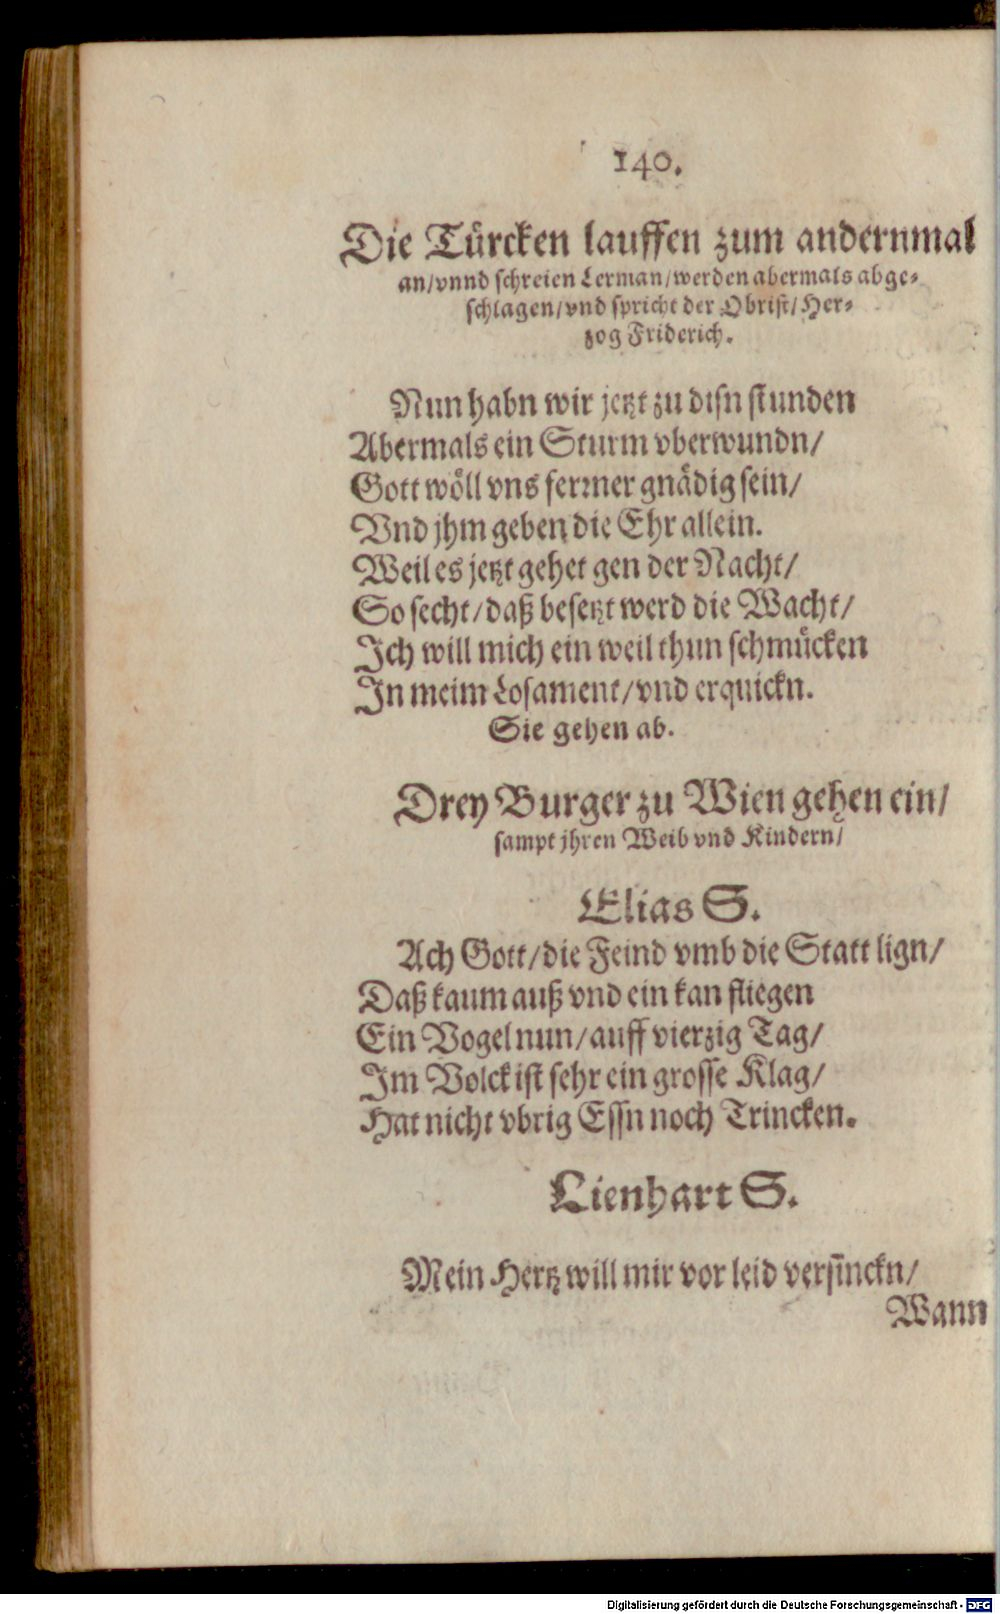 140.
Die Türcken lauffen zum andernmal
an/vnnd schreien Lerman/werden abermals abge-
schlagen/vnd spricht der Obrist/Her-
zog Friderich.
Nun habn wir jetzt zu disn stunden
Abermals ein Sturm vberwundn/
Gott wöll vns ferrner gnädig sein/
Vnd jhm geben die Ehr allein.
Weil es jetzt gehet gen der Nacht/
So secht/daß besetzt werd die Wacht/
Ich will mich ein weil thun schmücken
In meim Losament/vnd erquickn.
Sie gehen ab.
Drey Burger zu Wien gehen ein/
sampt jhren Weib vnd Kindern/
Elias S.
Ach Gott/die Feind vmb die Statt lign/
Daß kaum auß vnd ein kan fliegen
Ein Vogel nun/auff vierzig Tag/
Im Volck ist sehr ein grosse Klag/
Hat nicht vbrig Essn noch Trincken.
Lienhart S.
Mein Hertz will mir vor leid versinckn/
Wann
Digitalisierung gefördert durch die Deutsche Forschungsgemeinschaft - DFG